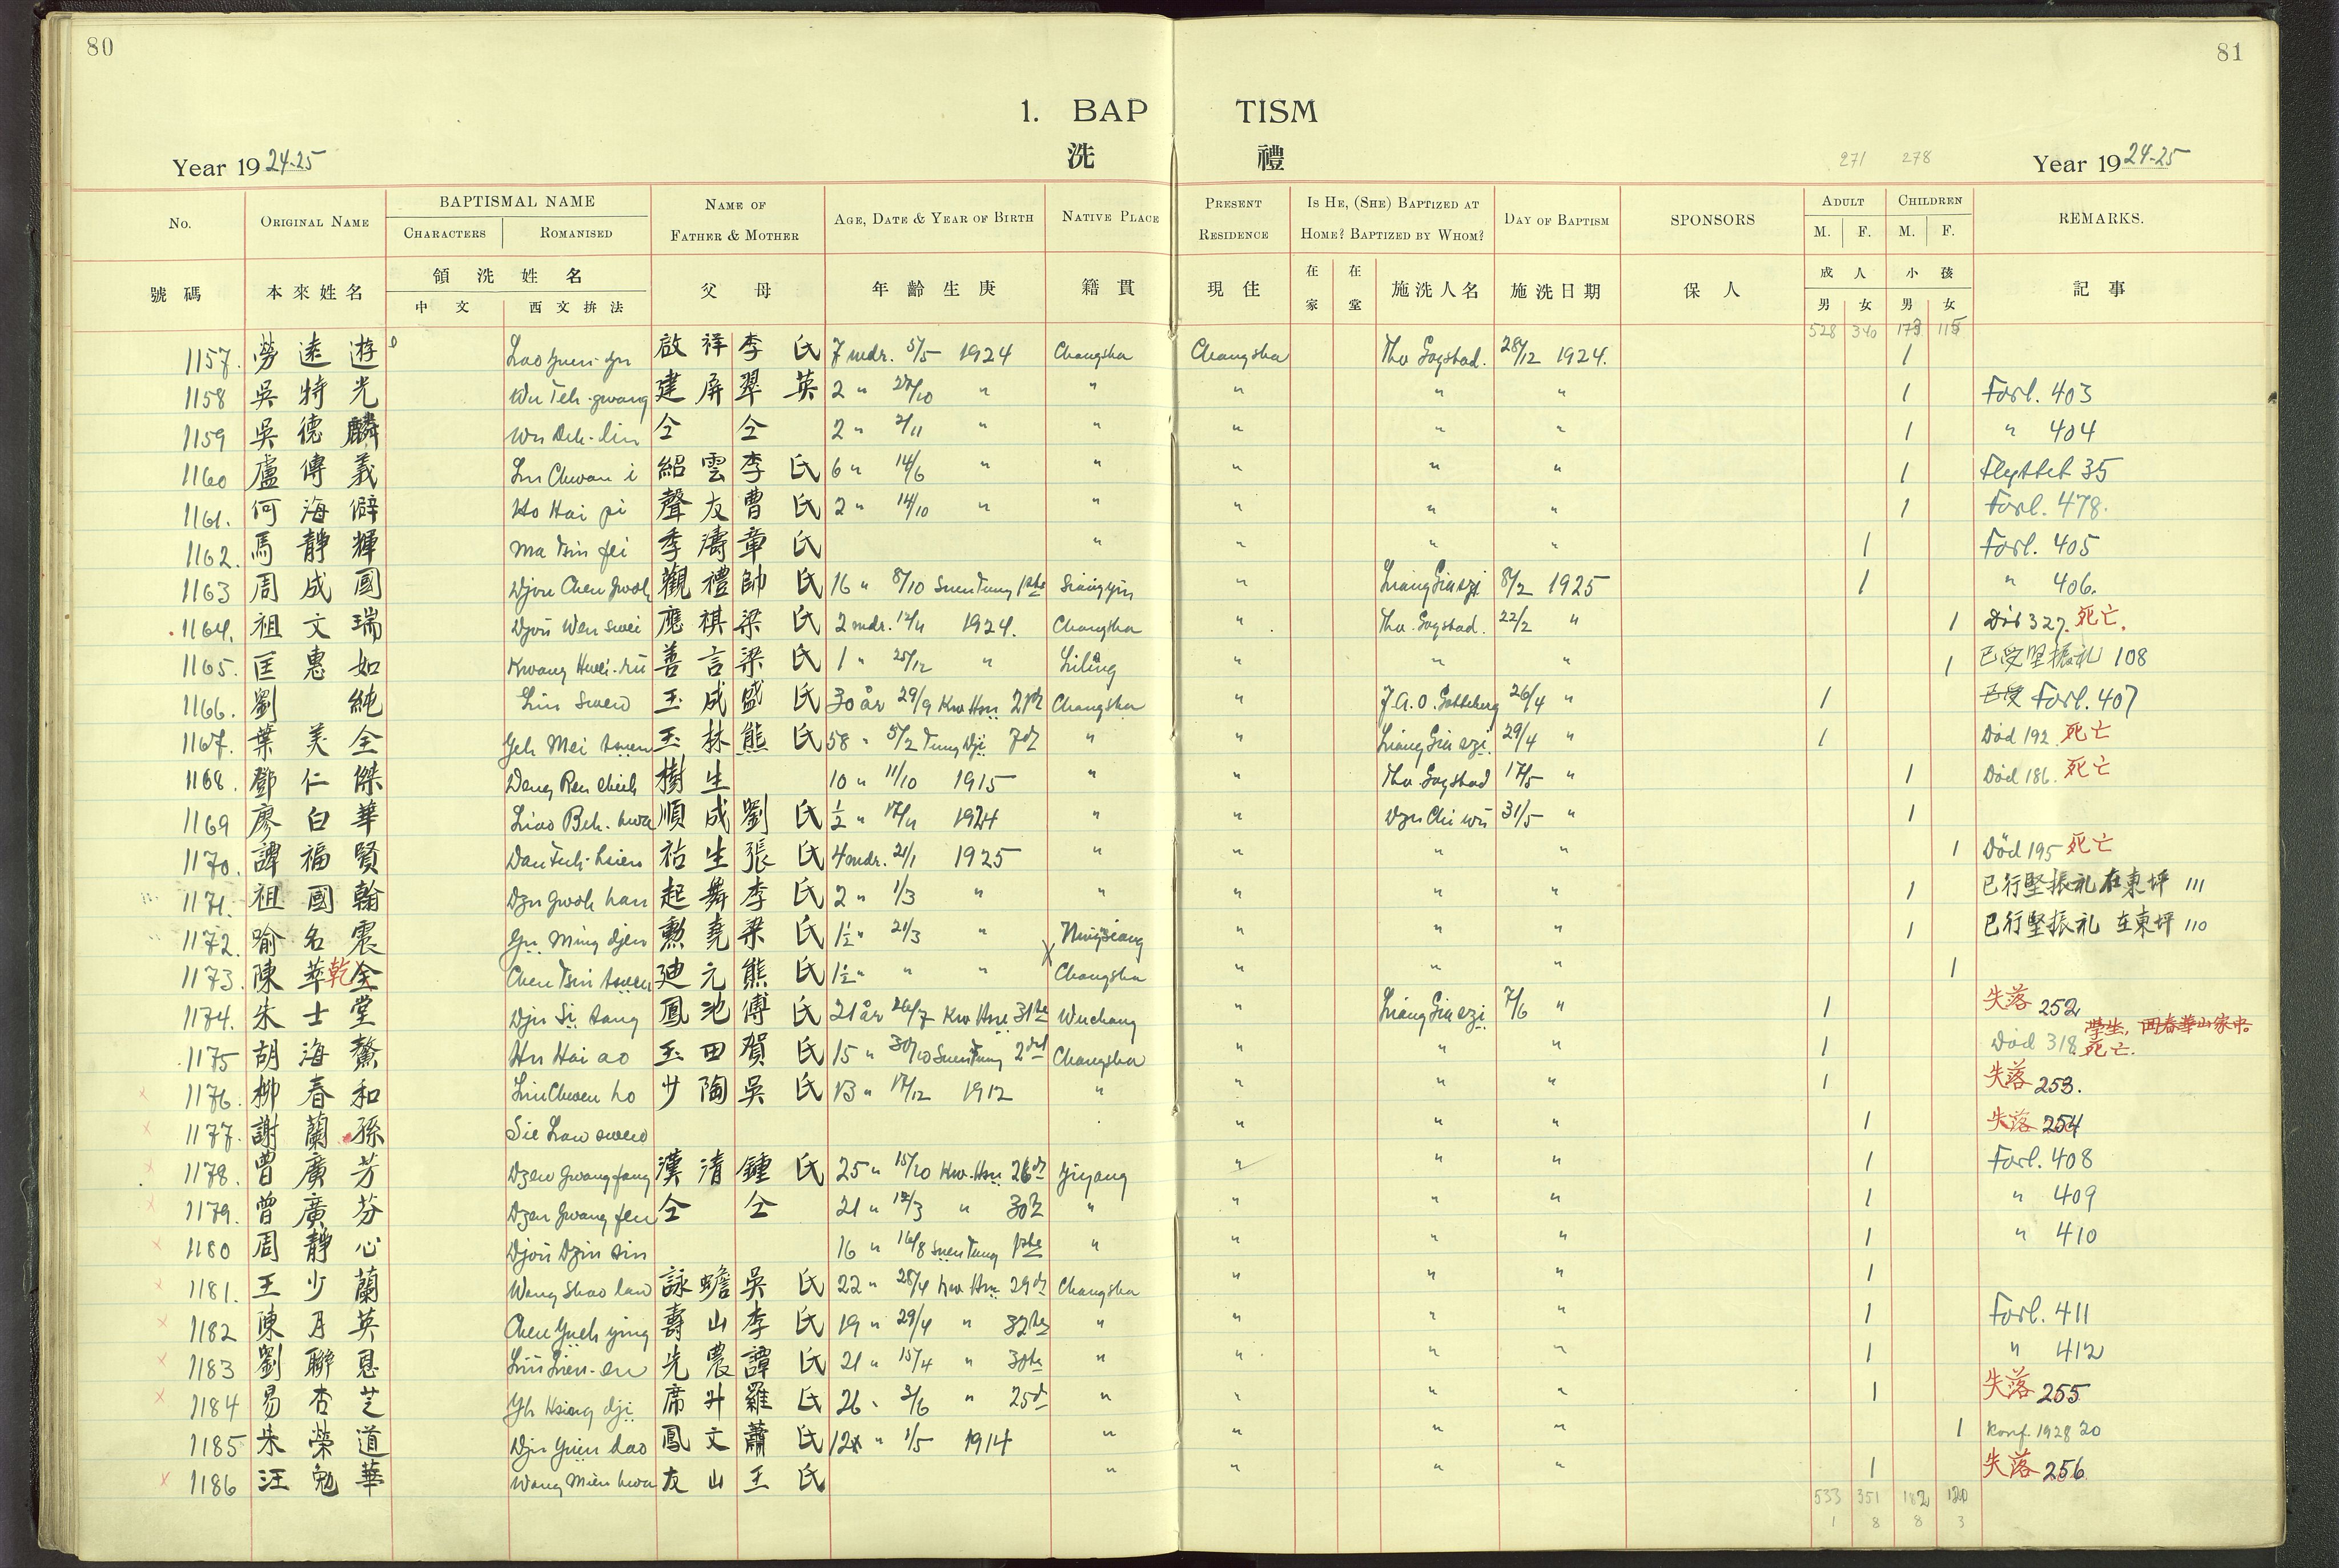 80
81
1. BAPTISM
洗 禮
Year 1924-25
271 278
Year 1924-25
No. ORIGINAL NAME BAPTISMAL NAME CHARACTERS ROMANISED NAME OF FATHER & MOTHER AGE, DATE & YEAR OF BIRTH NATIVE PLACE PRESENT RESIDENCE IS HE, (SHE) BAPTIZED AT HOME? BAPTIZED BY WHOM? DAY OF BAPTISM SPONSORS ADULT M. F. CHILDREN M. F. REMARKS.
號碼 本來姓名 領洗姓名 中文 西文拚法 父母 年齡生庚 籍貫 現住 在家 在堂 施洗人名 施洗日期 保人 成人 男 女 小孩 男 女 記事
528 340 173 115
1157. 勞遠遊 Lao Yuen-yu 啟祥 李氏 7 mdr. 5/5 1924 Changsha Changsha Tho Gogstad. 28/12 1924. 1
1158 吳特光 Wu Teh-gwang 建屏 翠英 2 " 27/10 " " " " " 1 Forl. 403
1159 吳德麟 Wu Deh-lin 仝 仝 2 " 2/11 " " " " " 1 " 404
1160 盧傳義 Lu Chwan i 紹雲 李氏 6 " 14/6 " " " " " 1 Flyttet 35
1161. 何海僻 Ho Hai pi 聲友 曹氏 2 " 14/10 " " " " " 1 Forl. 478.
1162. 馬靜輝 Ma Tsin fei 季濤 章氏 " " " " 1 Forl. 405
1163 周成國 Djou Chen Gwoh 觀禮 帥氏 16 " 8/10 Suen Tung 1ste Siangyin " Liang Gia szi 8/2 1925 1 " 406.
1164. 祖文瑞 Djou Wen swei 應祺 梁氏 2 mdr. 12/11 1924. Changsha " Tho. Gogstad. 22/2 " 1 Död 327. 死亡.
1165. 匡惠如 Kwang Hwei-ru 善言 梁氏 1 " 25/12 " Liling " " " 1 已受堅振礼 108
1166. 劉純 Liu Swen 玉成 盛氏 30 år 29/9 Kw Hsu 21de Changsha " J.A.O. Gotteberg 26/4 " 1 Forl. 407
1167. 葉美全 Yeh Mei tsuen 玉林 熊氏 58 " 5/2 Tung Dji 7de " " Liang Gia szi. 29/4 " 1 Död 192. 死亡
1168. 鄧仁傑 Deng Ren chieh 樹生 10 " 11/10 1915 " " Tho Gogstad 17/5 " 1 Död 186. 死亡
1169 廖白華 Liao Beh-hwa 順成 劉氏 1/2 " 17/11 1924 " " Dzu Chi wu 31/5 " 1
1170. 譚福賢 Dan Fuh-hsien 祜生 張氏 4 mdr. 21/1 1925 " " " " 1 Död 195 死亡
1171. 祖國翰 Dzu Gwoh han 起舞 李氏 2 " 1/3 " " " " " 1 已行堅振礼在東坪 111
1172. 喻名震 Yu Ming djen 勳堯 梁氏 1½ " 21/3 " Ningsiang " " " 1 已行堅振礼 在東坪 110
1173. 陳萃乾全 Chen Tsin tsuen 廸元 熊氏 1½ " " " Changsha " " " 1
1174. 朱士堂 Dju Si tang 鳳池 傅氏 21 år 26/7 Kw Hsu 31te Wuchang " Liang Gia szi 7/6 " 1 失落 252
1175 胡海鰲 Hu Hai ao 玉田 賀氏 15 " 30/10 Suen Tung 2det Changsha " " " 1 Död 318 學生, 回春華山家中死亡.
1176. 柳春和 Liu Chwen ho 少陶 吳氏 13 " 17/12 1912 " " " " 1 失落 253.
1177. 謝蘭孫 Sie Lan swen " " " 1 失落 254
1178. 曾廣芳 Dzen Gwang fang 漢清 鍾氏 25 " 15/10 Kw. Hsu 26de Yiyang " " " 1 Forl. 408
1179. 曾廣芬 Dzen Gwang fen 仝 仝 21 " 12/3 " 30te " " " " 1 " 409
1180 周靜心 Djou Dzin sin 16 " 16/8 Suen Tung 1ste " " " " 1 " 410
1181. 王少蘭 Wang Shao lan 詠蟾 吳氏 22 " 28/4 Kw Hsu 29de Changsha " " " 1
1182 陳月英 Chen Yueh ying 壽山 李氏 19 " 29/4 " 32te " " " " 1 Forl. 411
1183 劉聯恩 Liu Lien-en 光農 譚氏 21 " 15/4 " 30te " " " " 1 " 412
1184 易杏芝 Yh Hsing dji 席升 羅氏 26 " 3/6 " 25d " " " " 1 失落 255
1185 朱榮道 Dju Yuin dao 鳳文 蕭氏 12 " 1/5 1914 " " " " 1 Konf. 1928 20
1186 汪勉華 Wang Mien hwa 友山 王氏 " " " " 1 失落 256
533 351 182 120
1 8 8 3